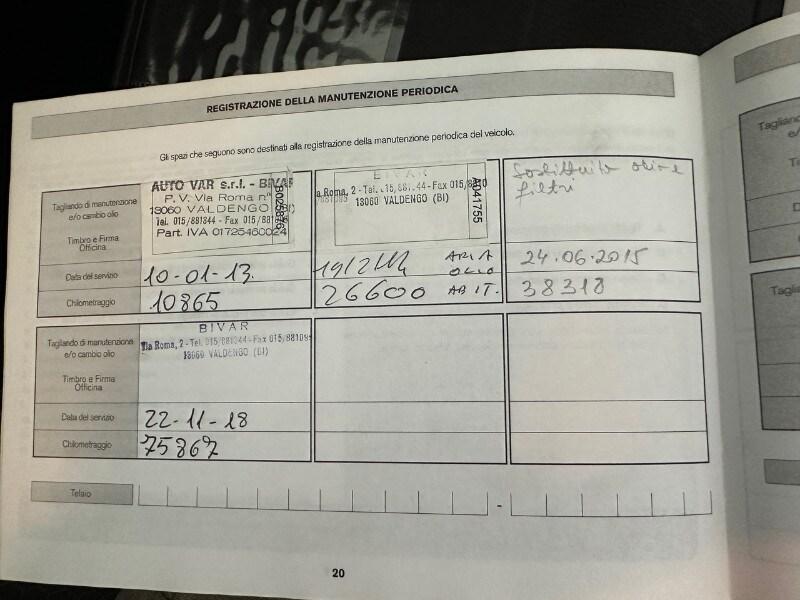 REGISTRAZIONE DELLA MANUTENZIONE PERIODICA
Gli spazi che seguono sono destinati alla registrazione della manutenzione periodica del veicolo.
Tagliando di manutenzione
e/o cambio olio
Timbro e Firma
Officina
AUTO VAR s.r.l. - BIVAR
P. V. Via Roma n°
13060 VALDENGO (BI)
Tel. 015/881344 - Fax 015/881
Part. IVA 01725460024
BIVAR
a Roma, 2 - Tel. 015/881344 - Fax 015/88
13060 VALDENGO (BI)
A041755
Sostituito olio e
filtri
Data del servizio
10-01-13.
ARIA
OLIO
24.06.2015
Chilometraggio
10865
26600 ABIT.
38318
Tagliando di manutenzione
e/o cambio olio
Timbro e Firma
Officina
BIVAR
Via Roma, 2 - Tel. 015/881344 - Fax 015/88109
13060 VALDENGO (BI)
Data del servizio
22-11-18
Chilometraggio
75867
Telaio
-
20